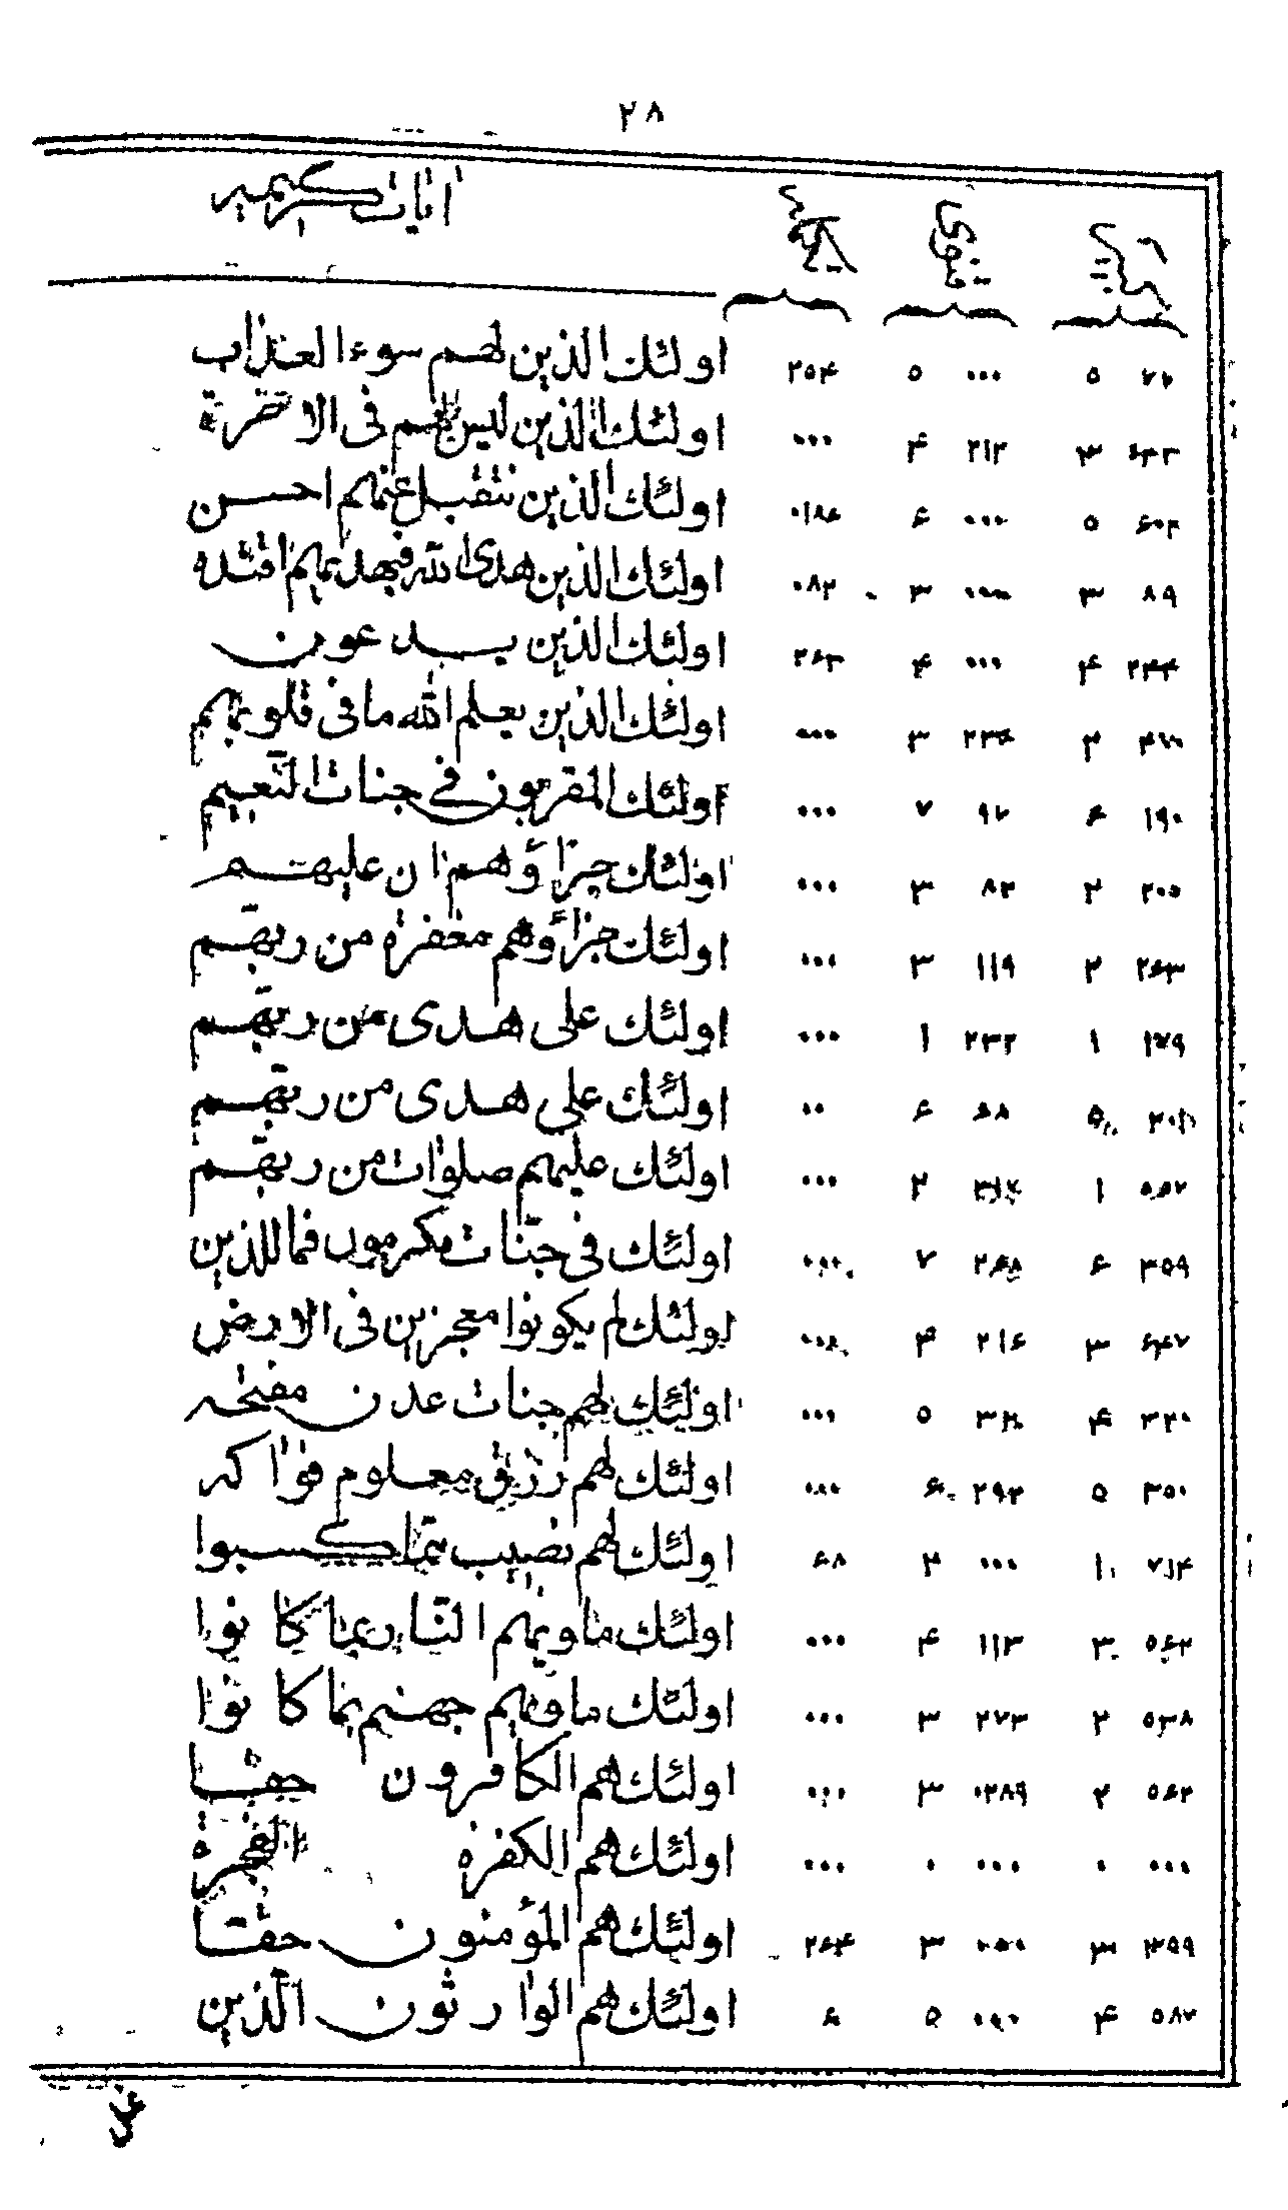 ۲۸
ایات کریمه
۷۲ ۵ ۰۰۰ ۵ ۲۵۴ اولئك الذین لهم سوء العذاب
۶۳۳ ۳ ۲۱۲ ۴ ۰۰۰ اولئك الذین لیس لهم فی الاخرة
۶۰۲ ۵ ۰۰۰ ۶ ۰۱۸۶ اولئك الذین نتقبل عنهم احسن
۸۹ ۳ ۰۰۰ ۳ ۰۸۲ اولئك الذین هدی الله فبهدیهم اقتده
۲۴۴ ۴ ۰۰۰ ۴ ۲۶۳ اولئك الذین یدعون
۲ ۲۳۶ ۳ ۰۰۰ اولئك الذین یعلم الله ما فی قلوبهم
۱۹۰ ۶ ۹۲ ۷ ۰۰۰ اولئك المقربون فی جنات النعیم
۲۰۵ ۲ ۸۲ ۳ ۰۰۰ اولئك جزاؤهم ان علیهم
۲۶۳ ۲ ۱۱۹ ۳ ۰۰۰ اولئك جزاؤهم مغفرة من ربهم
۱۷۹ ۱ ۲۳۲ ۱ ۰۰۰ اولئك علی هدی من ربهم
۵ ۶۸ ۶ ۰۰ اولئك علی هدی من ربهم
۵۵۷ ۱ ۲ ۰۰۰ اولئك علیهم صلوات من ربهم
۳۵۹ ۶ ۲۶۸ ۷ ۰۰۰ اولئك فی جنّات مكرمون فمال للذین
۶۴۷ ۳ ۲۱۶ ۴ ۰۰۰ اولئك لم یكونوا معجزین فی الارض
۳۲۰ ۴ ۵ ۰۰۰ اولئك لهم جنات عدن مفتحه
۳۵۰ ۵ ۲۹۲ ۶ ۰۰۰ اولئك لهم رزق معلوم فواكه
۷۱۴ ۱ ۰۰۰ ۲ ۶۸ اولئك لهم نصیب ممّا كسبوا
۵۶۲ ۳ ۱۱۳ ۴ ۰۰۰ اولئك ماویهم النّار بما كانوا
۵۳۸ ۲ ۲۷۳ ۳ ۰۰۰ اولئك ماویهم جهنم بما كانوا
۵۶۲ ۲ ۰۲۸۹ ۳ ۰۰۰ اولئك هم الكافرون حقا
۰۰۰ ۰ ۰۰۰ ۰ ۰۰۰ اولئك هم الكفرة الفجرة
۳۵۹ ۳ ۰۰۰ ۳ ۲۶۴ اولئك هم المؤمنون حقّا
۵۸۷ ۴ ۰۰۰ ۵ ۶ اولئك هم الوارثون الّذین